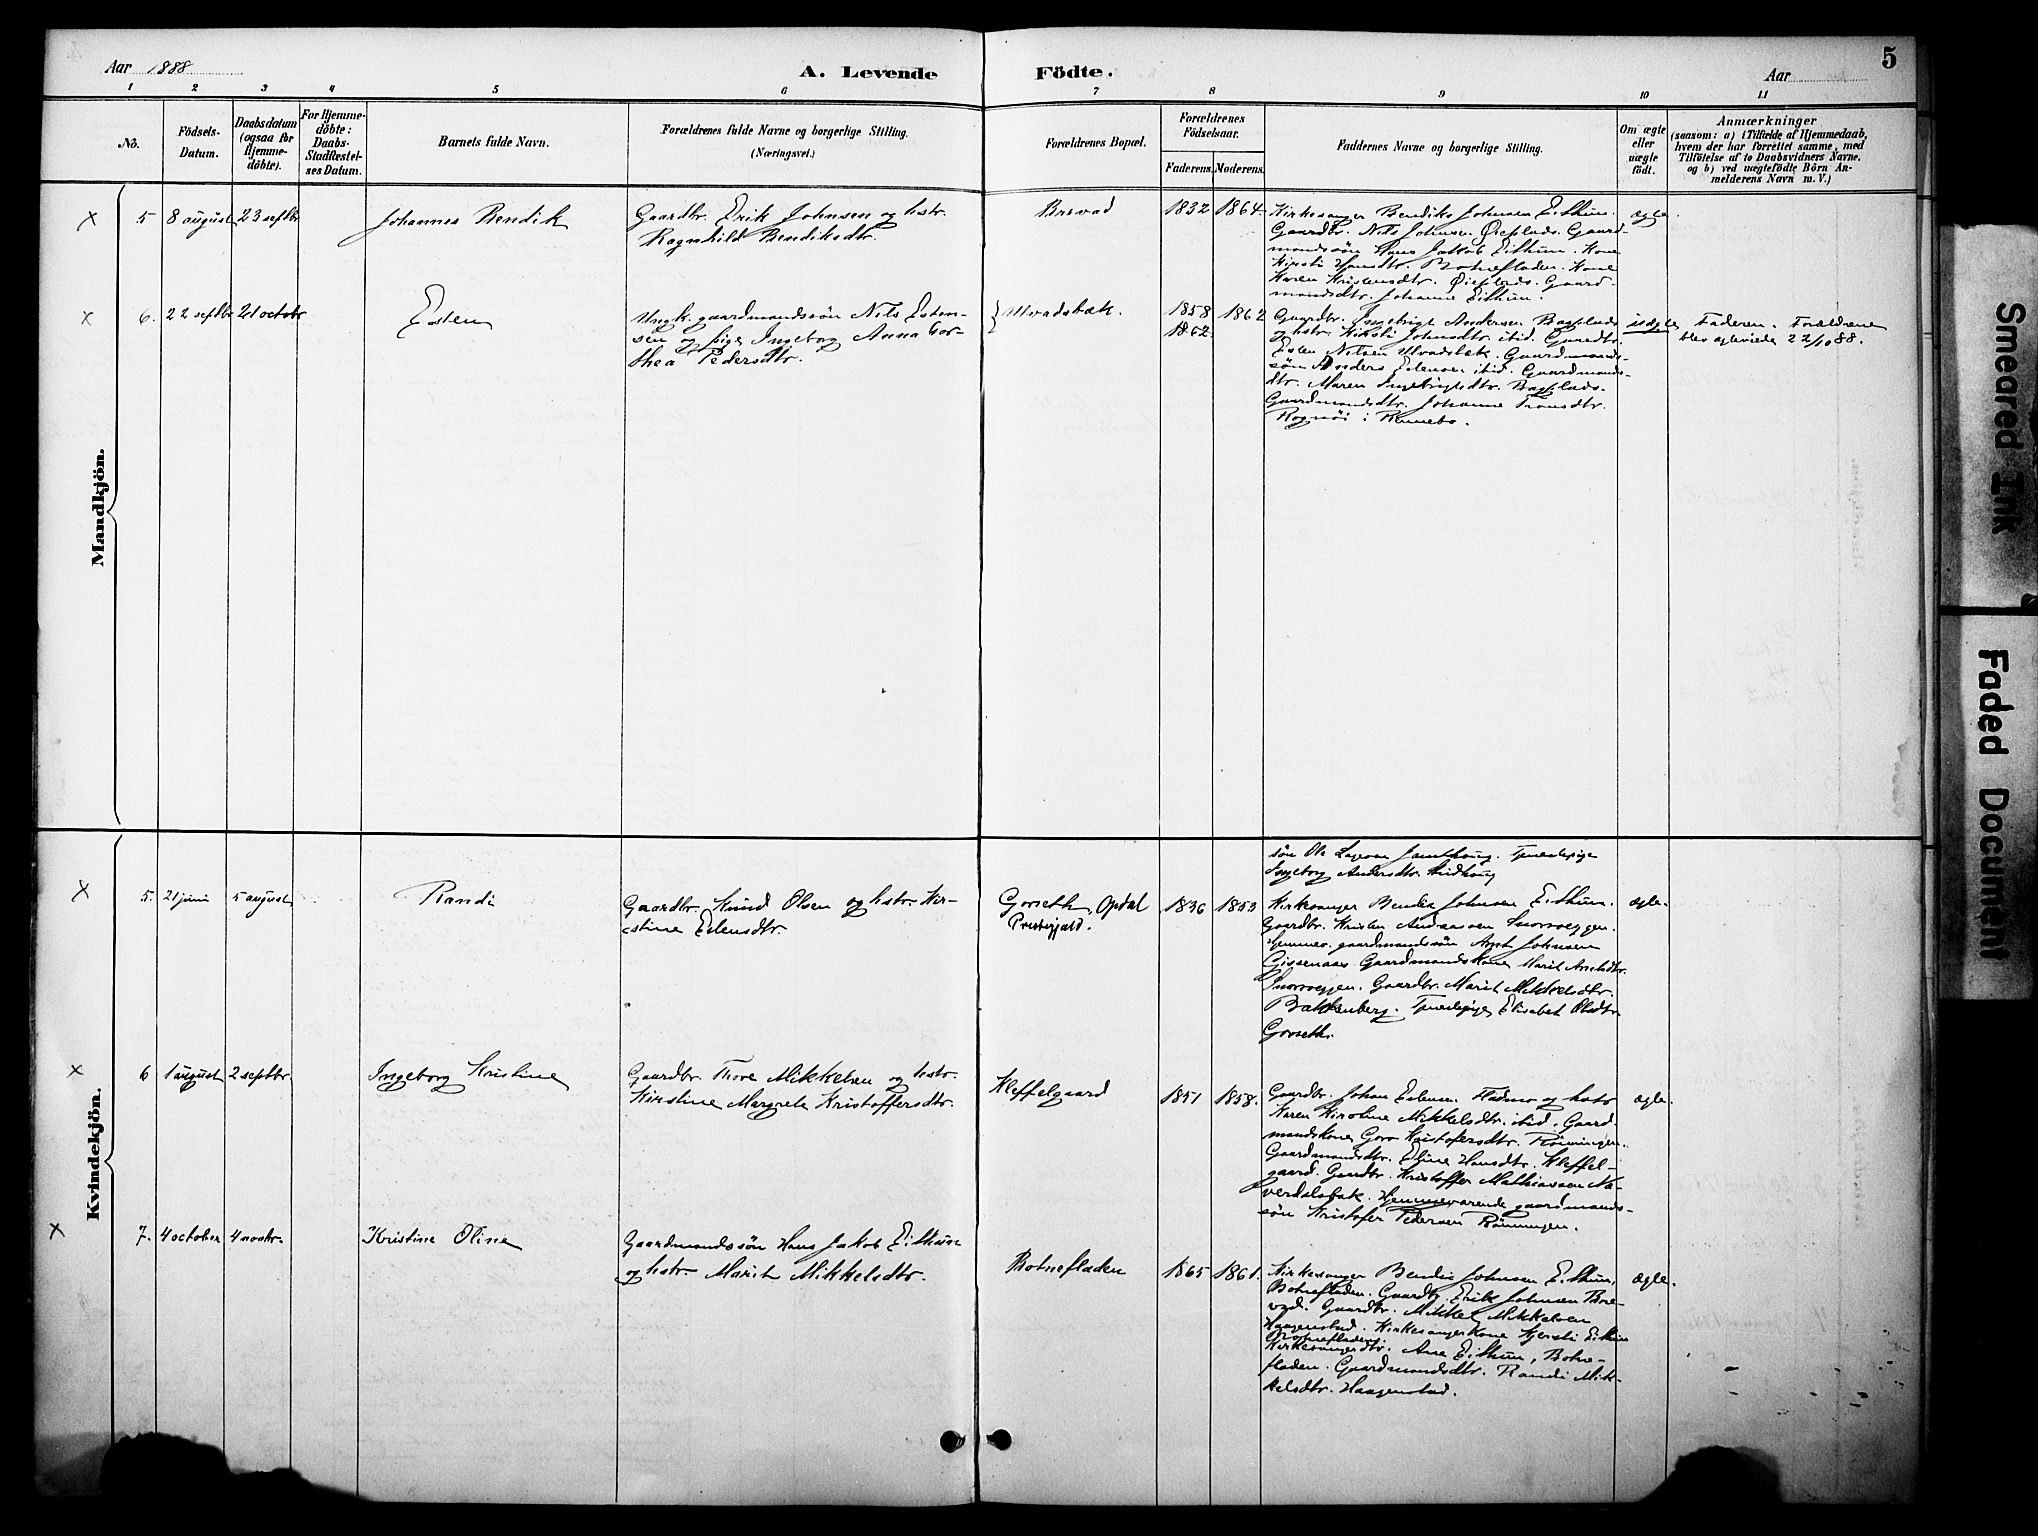 Aar 1888
A. Levende Födte.
Aar
5
1 2 3 4 5 6 7 8 9 10 11
No.
Födsels-Datum.
Daabsdatum (ogsaa for Hjemme-döbte).
For Hjemme-döbte: Daabs-Stadfæstel-ses Datum.
Barnets fulde Navn.
Forældrenes fulde Navne og borgerlige Stilling.
(Næringsvei.)
Forældrenes Bopæl.
Forældrenes Födselsaar.
Faderens. Moderens.
Faddernes Navne og borgerlige Stilling.
Om ægte eller uægte födt.
Anmærkninger
(saasom: a) i Tilfælde af Hjemmedaab, hvem der har forrettet samme, med Tilföielse af to Daabsvidners Navne. og b) ved uægtefödte Börn An-melderens Navn m. V.)
Mandkjön.
5 8 august 23 septbr Johannes Bendik
Gaardbr. Erik Johnsen og hstr.
Ragnhild Bendiksdtr.
Brevad 1832 1864
Kirkesanger Bendik Johnsen Eithun.
Gaardbr. Nils Johnsen Øieplads. Gaard-
mandssön Hans Jakob Eithun. Kone
Kirsti Hansdtr. Botnefladen. Kone
Karen Kristensdtr. Øieplads. Gaard-
mandsdtr. Johanne Eithun.
ægte
6. 22 septbr 21 octobr Esten
Ungk. gaardmandssön Nils Esten-
sen og pige Ingeborg Anna Dor-
thea Pedersdtr.
Ulvadsbæk. 1858 1862
1862.
Gaardbr. Ingebrigt Andersen Bagplads
og hstr. Kirsti Johnsdtr. ibid. Gaardbr.
Esten Nilsen Ulvadsbæk. Gaardmands-
sön Anders Estensen ibid. Gaardmands-
dtr. Maren Ingebrigtsdtr. Bagplads.
Gaardmandsdtr. Johanne
i Rennebo.
uægte
Faderen. Forældrene
blev ægteviede 22/10 88.
Kvindekjön.
sön Ole
Ingeborg Andersdtr.
5. 21 juni 5 august Randi
Gaardbr. Knud Olsen og hstr. Kir-
stine Estensdtr.
Gorseth, Opdal
Præstegjæld.
1836 1853
Kirkesanger Bendik Johnsen Eithun.
Gaardbr. Kristen Andreassen Snorveggen.
Hjemmev. gaardmandssön Arnt Johnsen
Gissenaas. Gaardmandskone Marit Arntsdtr.
Snorveggen. Gaardbr. Marit Mikkelsdtr.
Bakkenberg. Tjenestepige Elisabet Olsdtr.
Gorseth.
ægte.
6 1 august 2 septbr. Ingeborg Kristine
Gaardbr. Thore Mikkelsen og hstr.
Kirstine Margrete Kristoffersdtr.
Kleffelgaard 1851 1858.
Gaardbr. Johan Estensen Fladmo og hstr.
Karen Kirstine Mikkelsdtr. ibid. Gaard-
mandskone Goro Kristofersdtr. Rönningen.
Gaardmandsdtr. Eline Hansdtr. Kleffel-
gaard. Gaardbr. Kristoffer Mathiassen Na-
verdalsbak. Hjemmeværende gaardmands-
sön Kristofer Pedersen Rönningen.
ægte.
7. 4 october 4 novbr. Kristine Oline
Gaardmandssön Hans Jakob Eithun
og hstr. Marit Mikkelsdtr.
Botnefladen 1865 1861.
Kirkesanger Bendik Johnsen Eithun,
Botnefladen. Gaardbr. Erik Johnsen Bre-
vad. Gaardbr. Mikkel Mikkelsen
Haagenstad. Kirkesangerkone Kjersti Eithun
Botnefladen.
Kirkesangerdtr. Ane Eithun, Botne-
fladen. Gaardmandsdtr. Randi Mik-
kelsdtr. Haagenstad.
ægte.
Smeared Ink
Faded Document